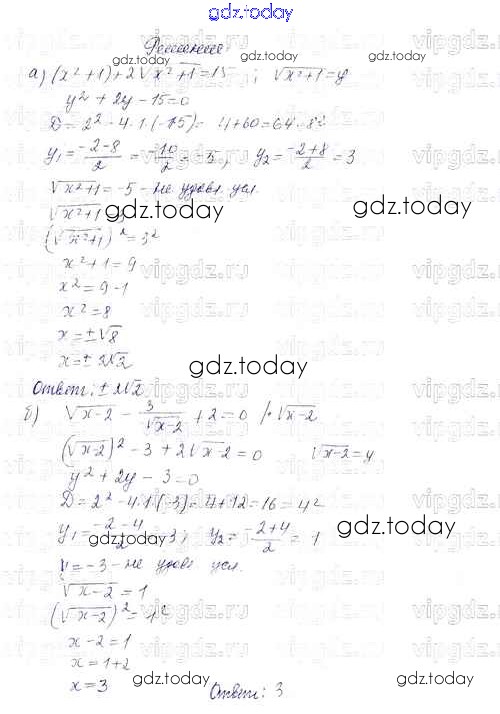 gdz.today
Решение.
gdz.today gdz.today gdz.today
а) (x²+1)+2√(x²+1)=15 ; √(x²+1)=y
y²+2y-15=0
D=2²-4·1·(-15)= 4+60=64=8²
y₁=(-2-8)/2=-10/2=-5; y₂=(-2+8)/2=3
√(x²+1)=-5 - не удовл усл.
√(x²+1)=3
gdz.today gdz.today
(√(x²+1))²=3²
x²+1=9
x²=9-1
x²=8
x=±√8
x=±2√2
gdz.today
Ответ: ±2√2
б) √(x-2) - 3/√(x-2) +2=0 /·√(x-2)
(√(x-2))²-3+2√(x-2)=0 √(x-2)=y
y²+2y-3=0
D=2²-4·1·(-3)=4+12=16=4²
y₁=(-2-4)/2=-3; y₂=(-2+4)/2=1
gdz.today gdz.today
y=-3-не удовл усл.
√(x-2)=1
(√(x-2))²=1²
x-2=1
x=1+2
x=3
gdz.today gdz.today
Ответ: 3
vipgdz.ru